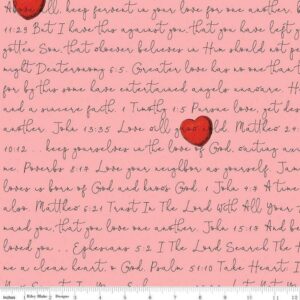 Above all, keep fervent in your love for one another.
11:23 But I have this against you, that you have left y
gotten Son, that whoever believes in Him should not p
might Deuteronomy 6:5. Greater love has no one than t
for by this some have entertained angels unaware. H
and a sincere faith. 1 Timothy 1:5 Pursue love, yet des
another. John 13:35 Love all Matthew 2
10:12 ... keep yourselves in the love of God, waiting anx
me. Proverbs 8:17 Love your neighbor as yourself. Jam
loves is born of God and knows God. 1 John 4:7 A time
also. Matthew 6:21 Trust In The Lord With All Your
mand you, that you love one another. John 15:17 And be
loved you ... Ephesians 5:2 I The Lord Search The
me a clean heart, o God. Psalm 51:10 Take Heart, I
St. John 14:1
inches 1 2 3 4 5 6 7 8 9 10 11 12
Riley Blake Designs